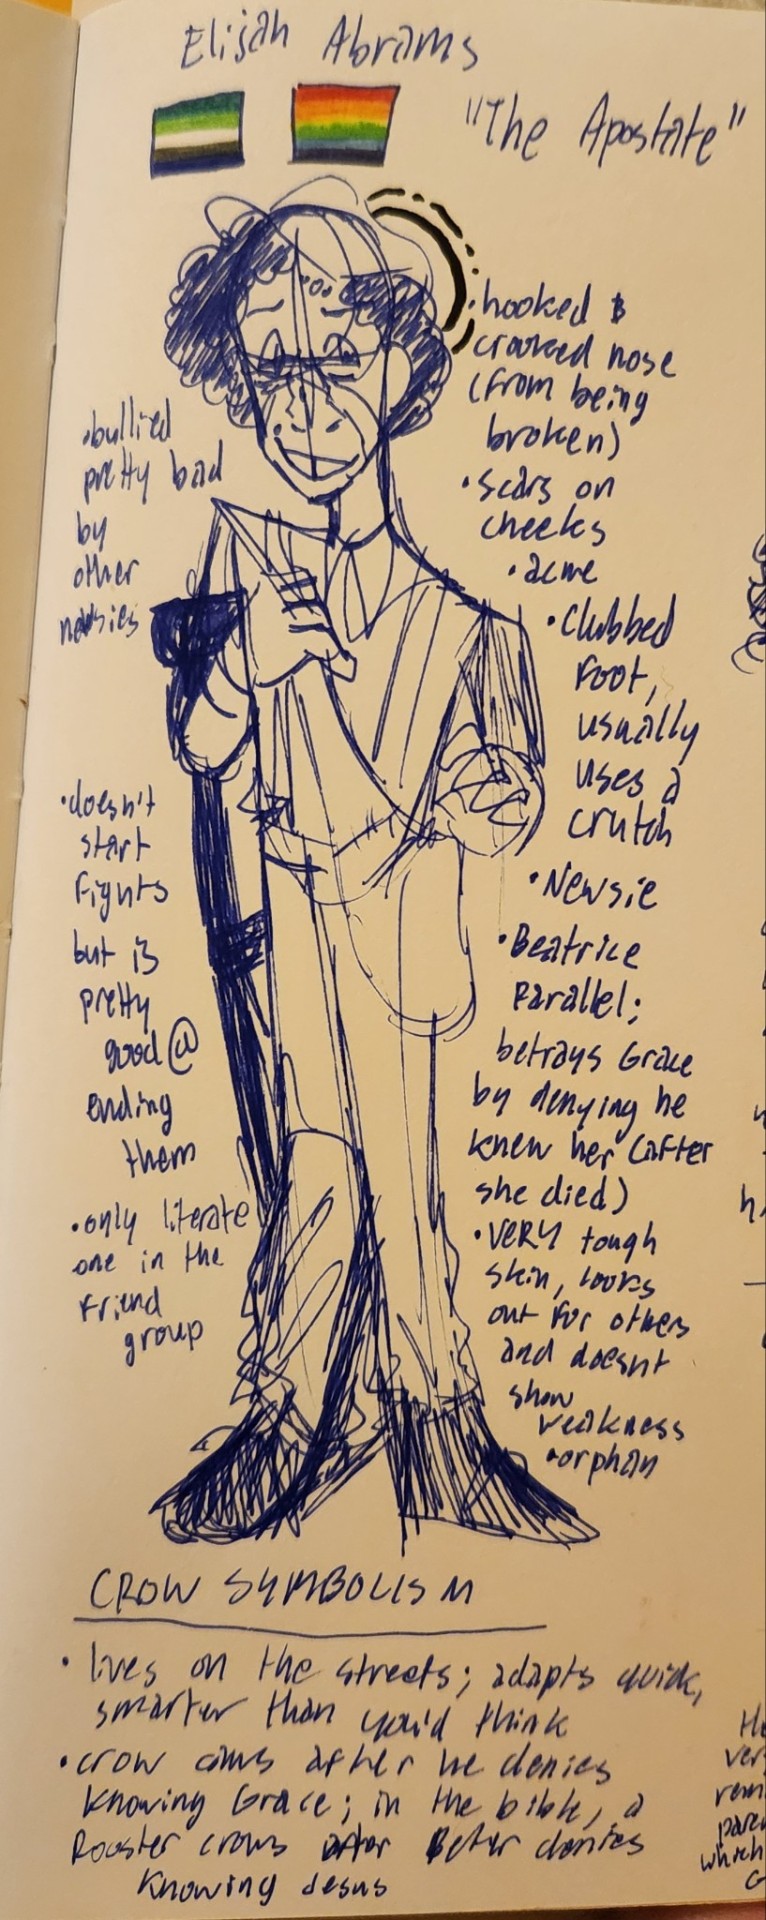 Elijah Abrams
"The Apostate"
•hooked &
crooked nose
(from being
broken)
•scars on
cheeks
•acne
•Clubbed
foot,
usually
uses a
crutch
•Newsie
•Beatrice
Parallel;
betrays Grace
by denying he
knew her (after
she died)
•VERY tough
skin, looks
out for others
and doesnt
show
weakness
•orphan
•bullied
pretty bad
by
other
newsies
•doesn't
start
fights
but is
pretty
good @
ending
them
•only literate
one in the
friend
group
CROW SYMBOLISM
•lives on the streets; adapts quick,
smarter than you'd think
•crow caws after he denies
knowing Grace; in the bible, a
Rooster crows after Peter denies
knowing Jesus